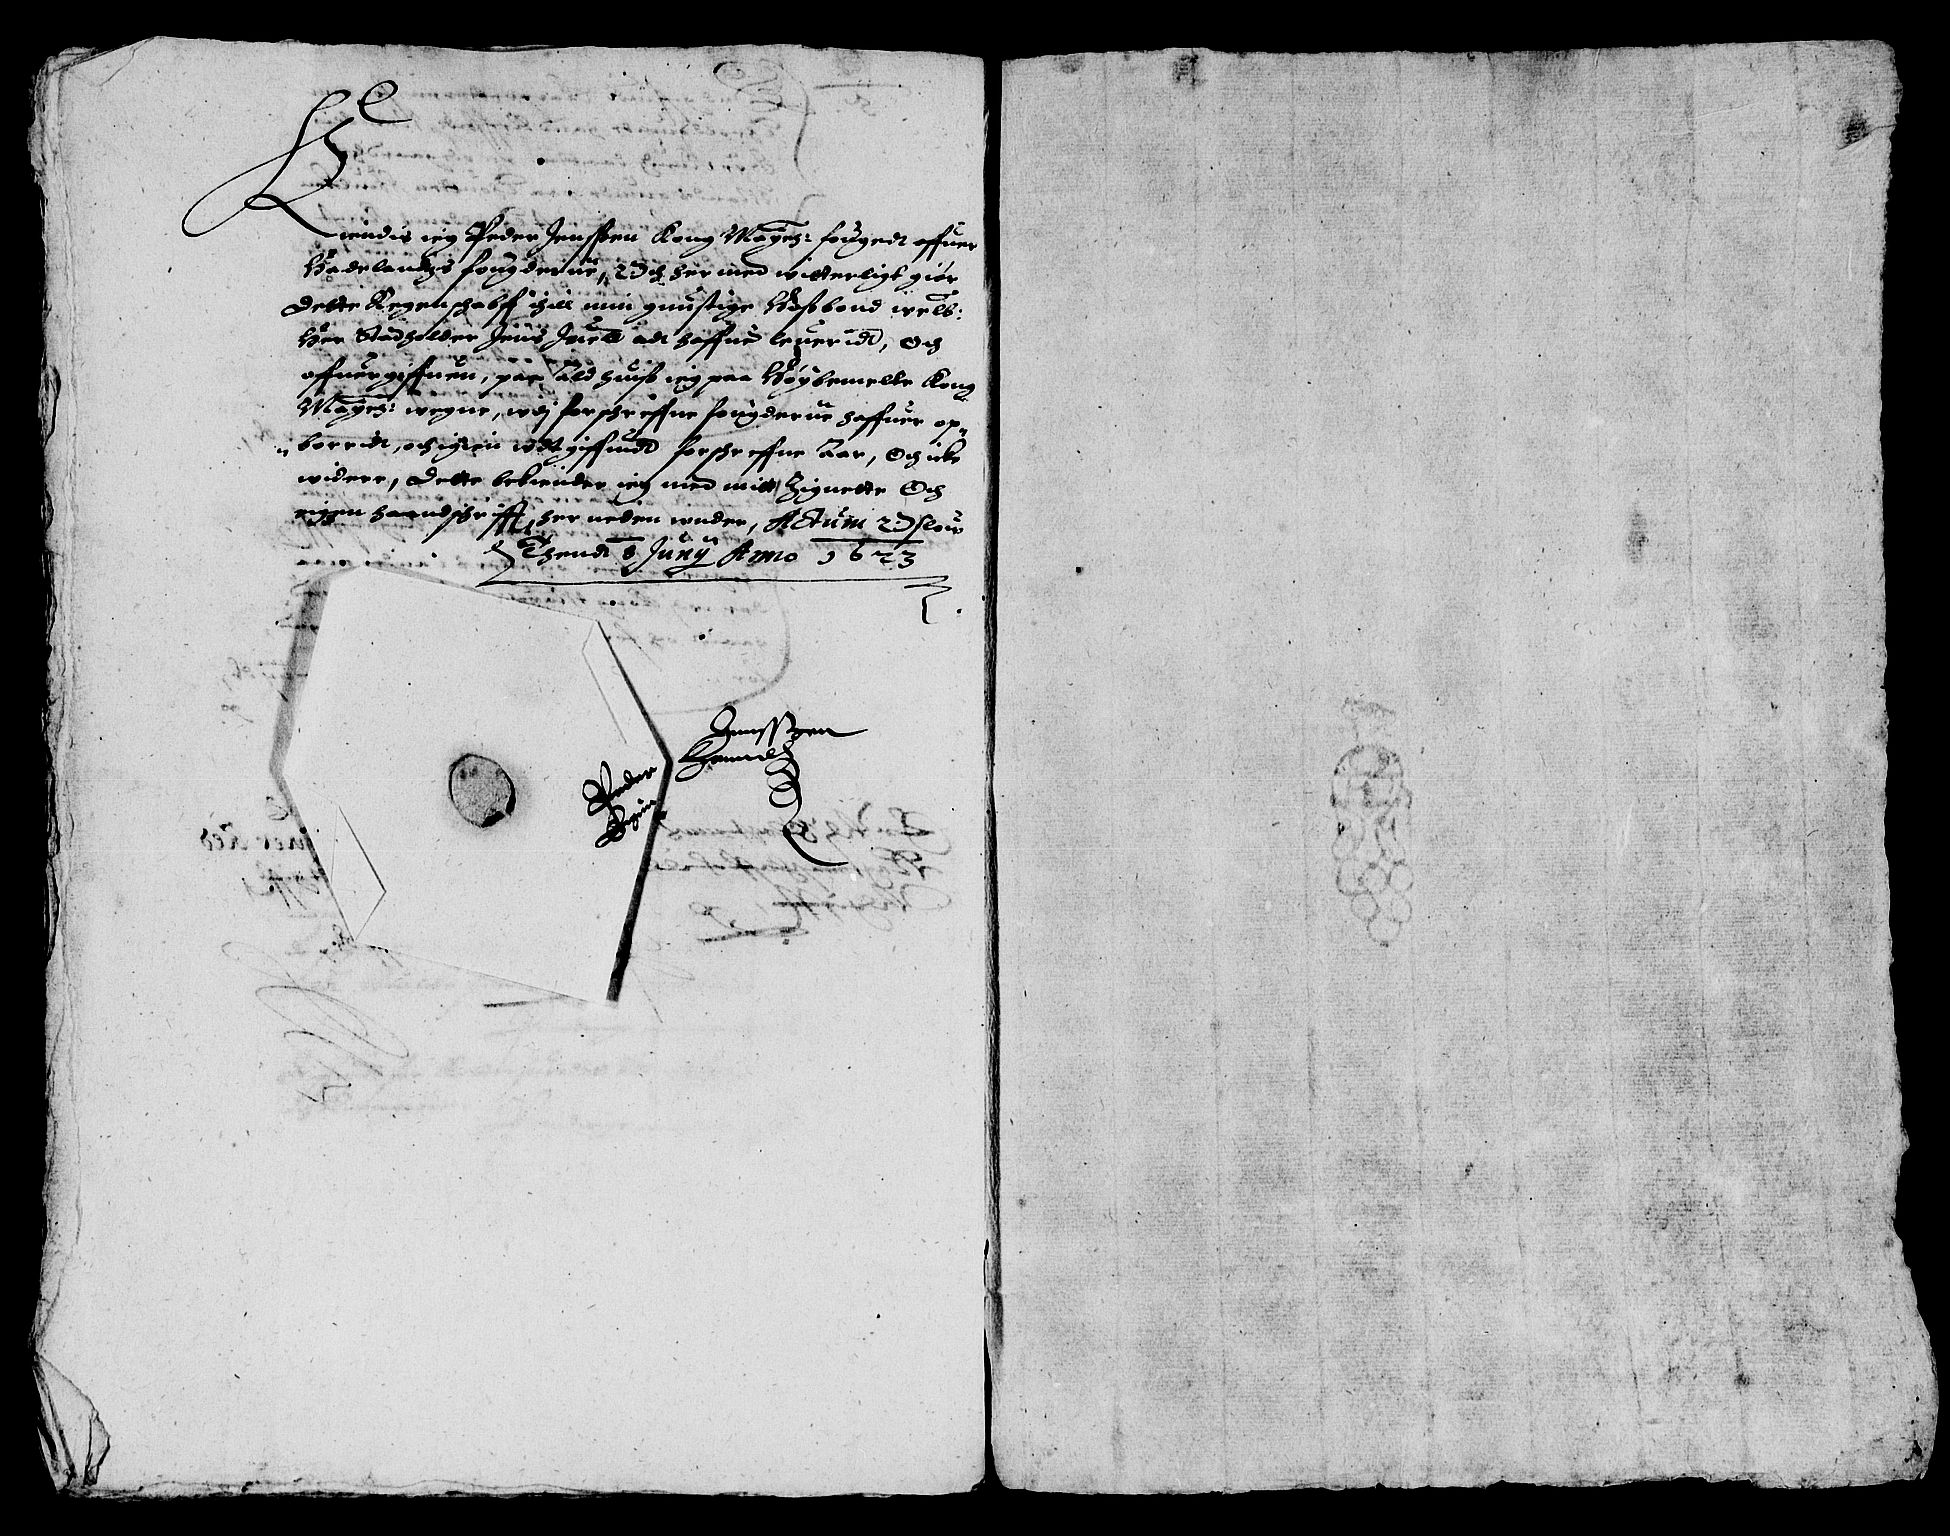 Kiendis ieg Peder Jensßen Kong Mayst: fougedt offuer
Hadelandtzs fougderie, Och her med witterligt giør
dette Regenschabff thill min gunstige Hoßbond welb:
Her Stadtholder Jens Juell adt haffue leueridt, Och
offuergiffuen, paa ald huiß ieg paa Høybemelte Kong
Mayst: wegne, wdj forschreffne fougderie haffuer op„
„borridt, och igien wdtgiffuidt forschreffne Aar, Och icke
widere, Dette bekiender ieg med mitt Zignette Och
eigen haandschrifft her neden wnder, Actum Opslow
Thend 8 Junij Anno 1623
Peder Jensßen
Egenn Haandt